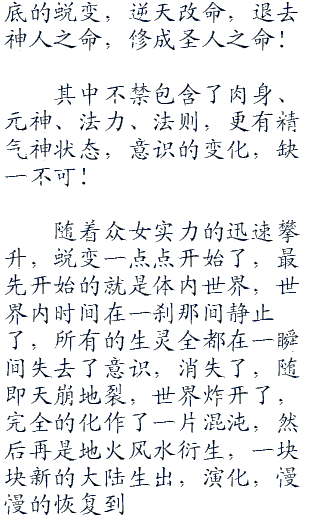 底的蜕变，逆天改命，退去
神人之命，修成圣人之命！
其中不禁包含了肉身、
元神、法力、法则，更有精
气神状态，意识的变化，缺
一不可！
随着众女实力的迅速攀
升，蜕变一点点开始了，最
先开始的就是体内世界，世
界内时间在一刹那间静止
了，所有的生灵全都在一瞬
间失去了意识，消失了，随
即天崩地裂，世界炸开了，
完全的化作了一片混沌，然
后再是地火风水衍生，一块
块新的大陆生出，演化，慢
慢的恢复到